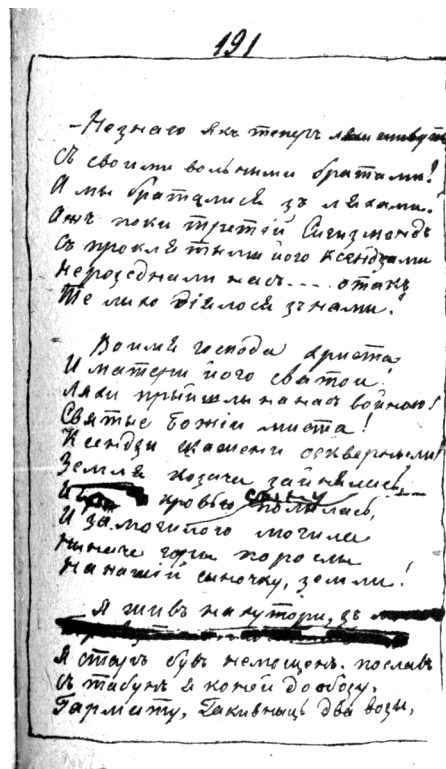 191
— Незнаю якъ теперъ ляхи живуть
Съ своими вольными братами!
А мы браталися зъ ляхами!
Ажъ поки третій Сигизмондъ
Съ проклятыми його ксендзами
Нерозеднали насъ.... отакъ
Те лихо діялося зънами!
Воимя господа христа
И матери його святои!
Ляхи прыйшлы на насъ войною!
Святые божіи миста!
Ксендзи скажени осквернили!
Земля козача зайнялась,
И кровью сыну полилась,
И за могилою могила
Ниначе горы поросли
На нашій сыночку, земли!
Я живъ на хутори, зъ
Я старъ бувъ немощенъ. пославъ
Съ табунъ я коней до обозу,
Гармату, гакивныць два возы,